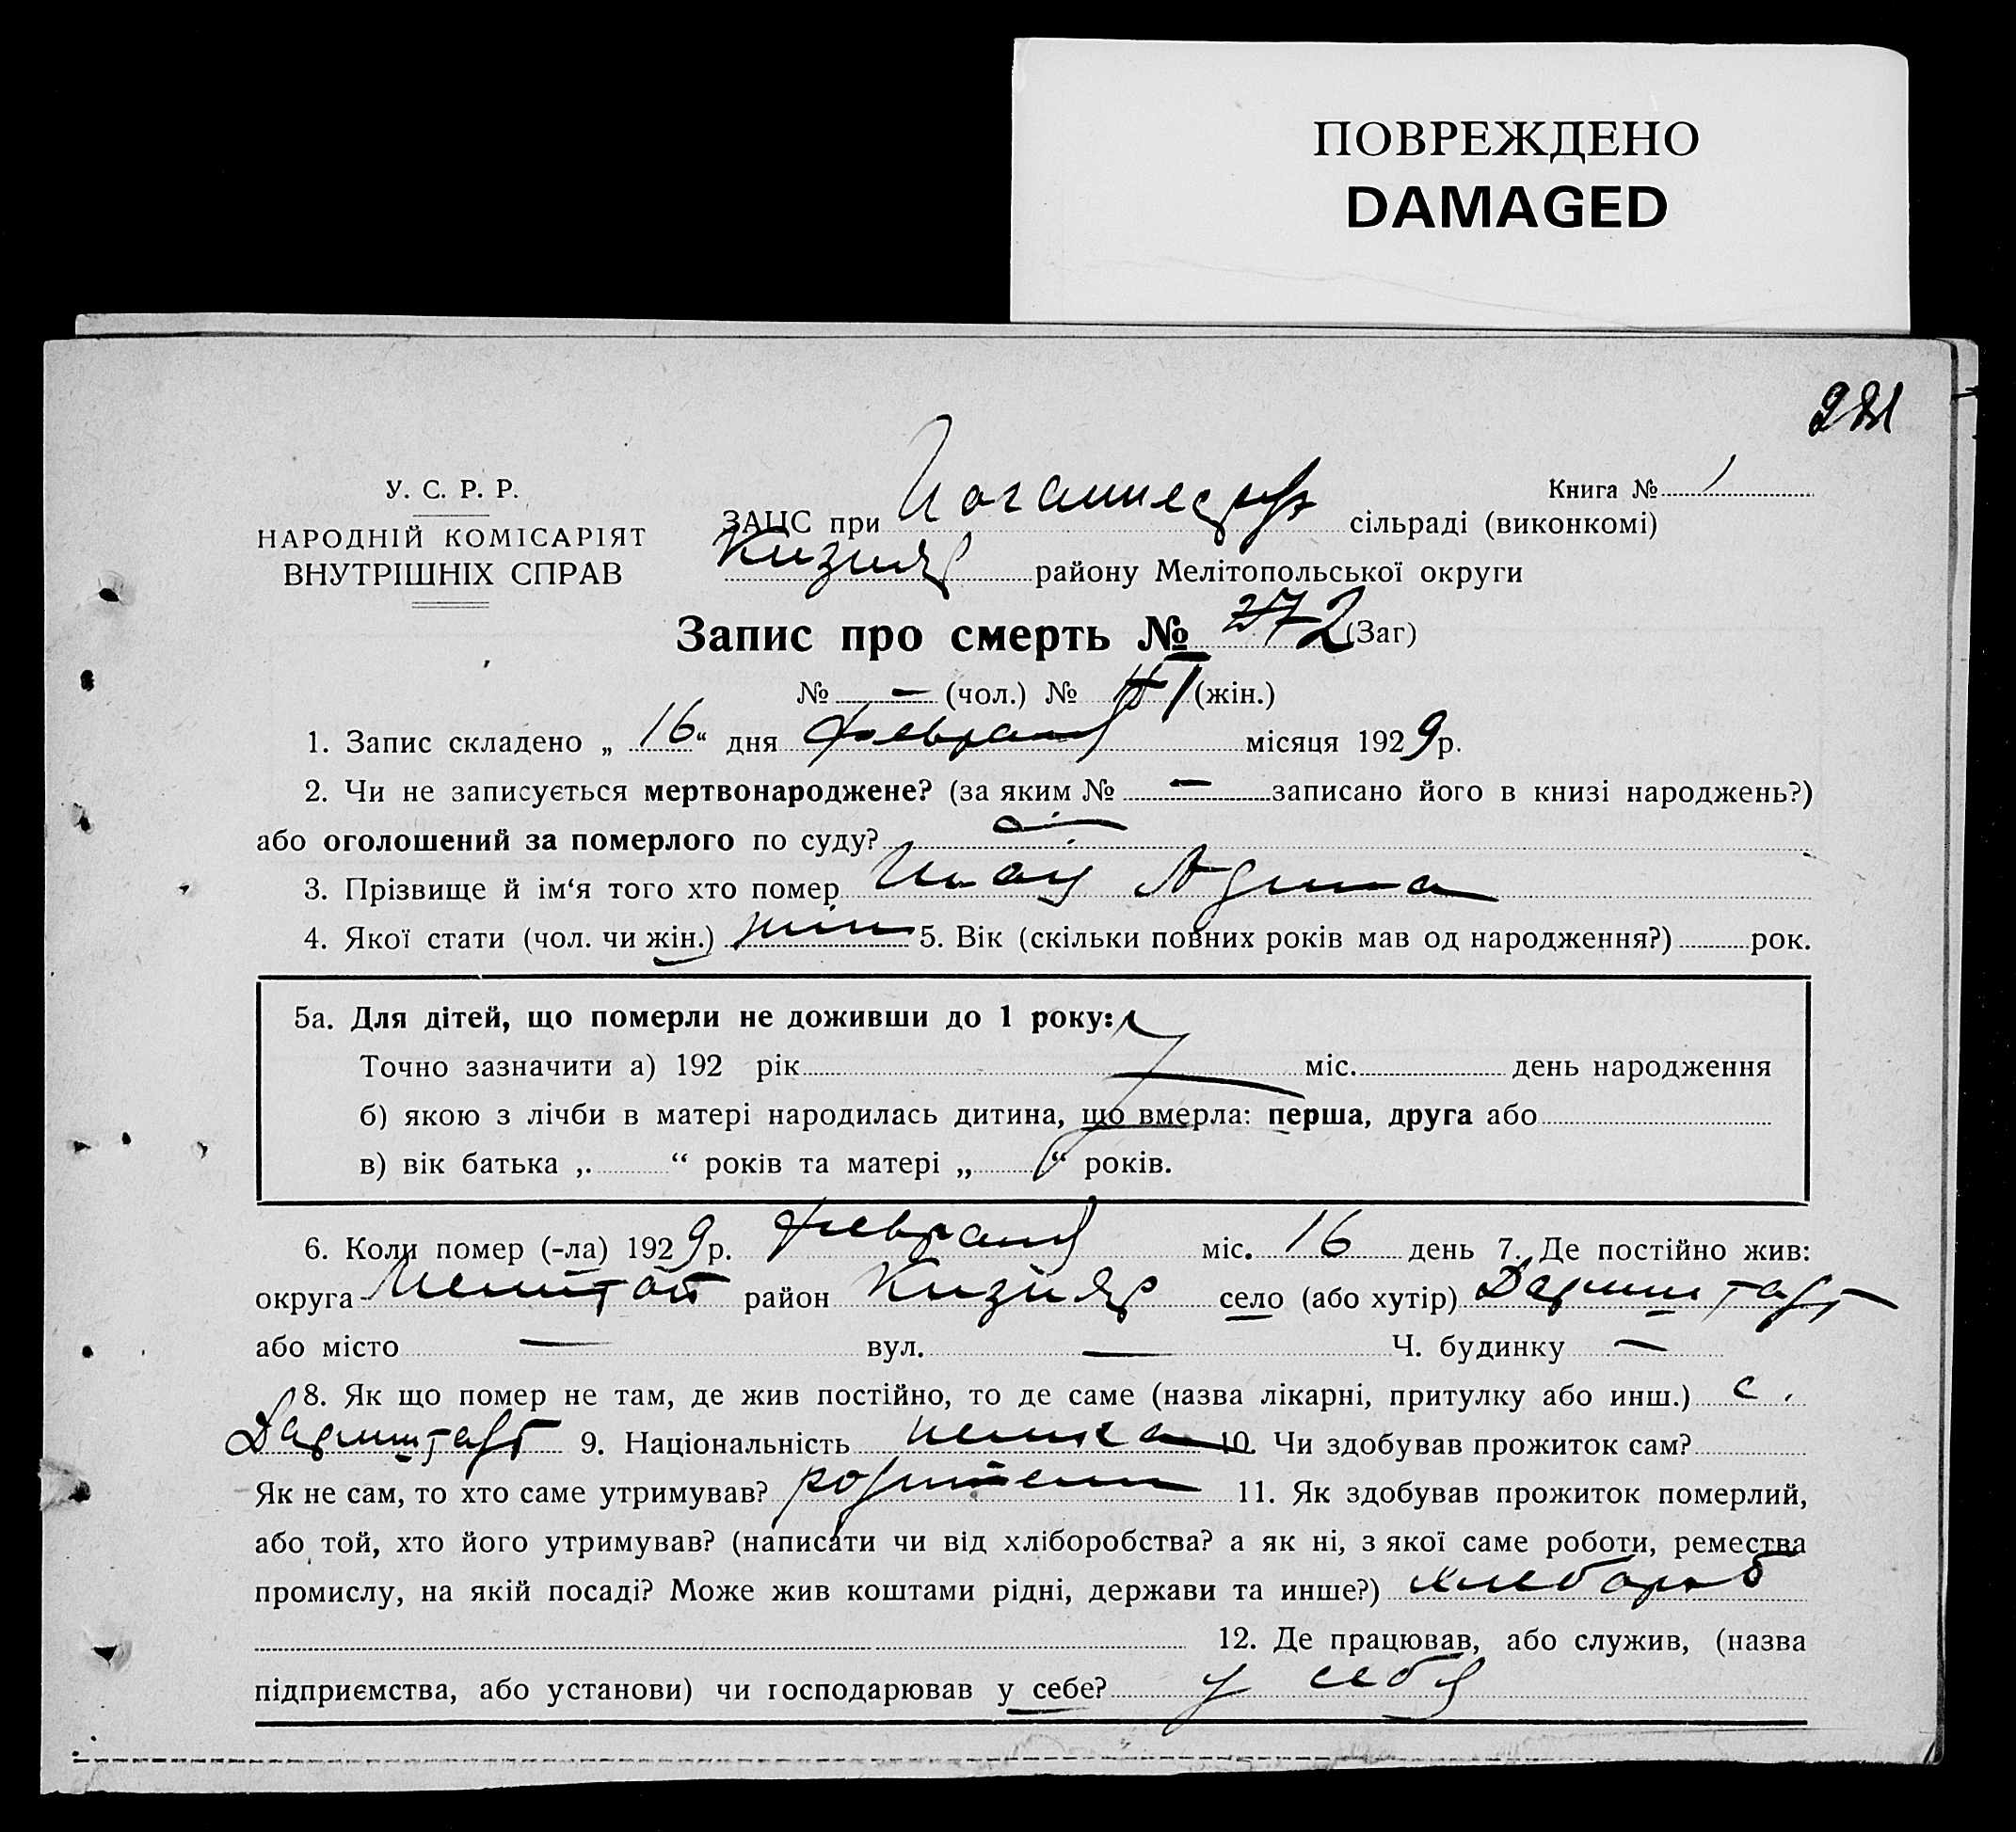 ПОВРЕЖДЕНО
DAMAGED
У. С. Р. Р.
НАРОДНІЙ КОМІСАРІЯТ
ВНУТРІШНІХ СПРАВ
Книга № 1
ЗАЦС при сільраді (виконкомі)
Кизияр району Мелітопольської округи
Запис про смерть № 2 (Заг)
№ — (чол.) № 1 (жін.)
1. Запис складено „ 16 “ дня февраля місяця 1929 р.
2. Чи не записується мертвонароджене? (за яким № — записано його в книзі народжень?)
або оголошений за померлого по суду?
3. Прізвище й ім‘я того хто помер
4. Якої стати (чол. чи жін.) жін 5. Вік (скільки повних років мав од народження?) рок.
5а. Для дітей, що померли не доживши до 1 року:
Точно зазначити а) 192 рік міс. день народження
б) якою з лічби в матері народилась дитина, що вмерла: перша, друга або
в) вік батька ,. “ років та матері „ “ років.
6. Коли помер (-ла) 1929 р. февраля міс. 16 день 7. Де постійно жив:
округа район Кизіяр село (або хутір) Дармштадт
або місто — вул. — Ч. будинку —
8. Як що помер не там, де жив постійно, то де саме (назва лікарні, притулку або инш.) с.
Дармштадт 9. Національність немка 10. Чи здобував прожиток сам?
Як не сам, то хто саме утримував? родители 11. Як здобував прожиток померлий,
або той, хто його утримував? (написати чи від хліборобства? а як ні, з якої саме роботи, ремества
промислу, на якій посаді? Може жив коштами рідні, держави та инше?) хлебороб
12. Де працював, або служив, (назва
підприємства, або установи) чи господарював у себе? у себя